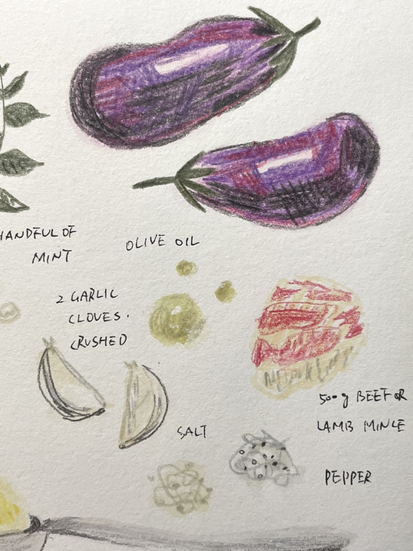 HANDFUL OF
MINT
OLIVE OIL
2 GARLIC
CLOVES.
CRUSHED
500g BEEF OR
LAMB MINCE
SALT
PEPPER